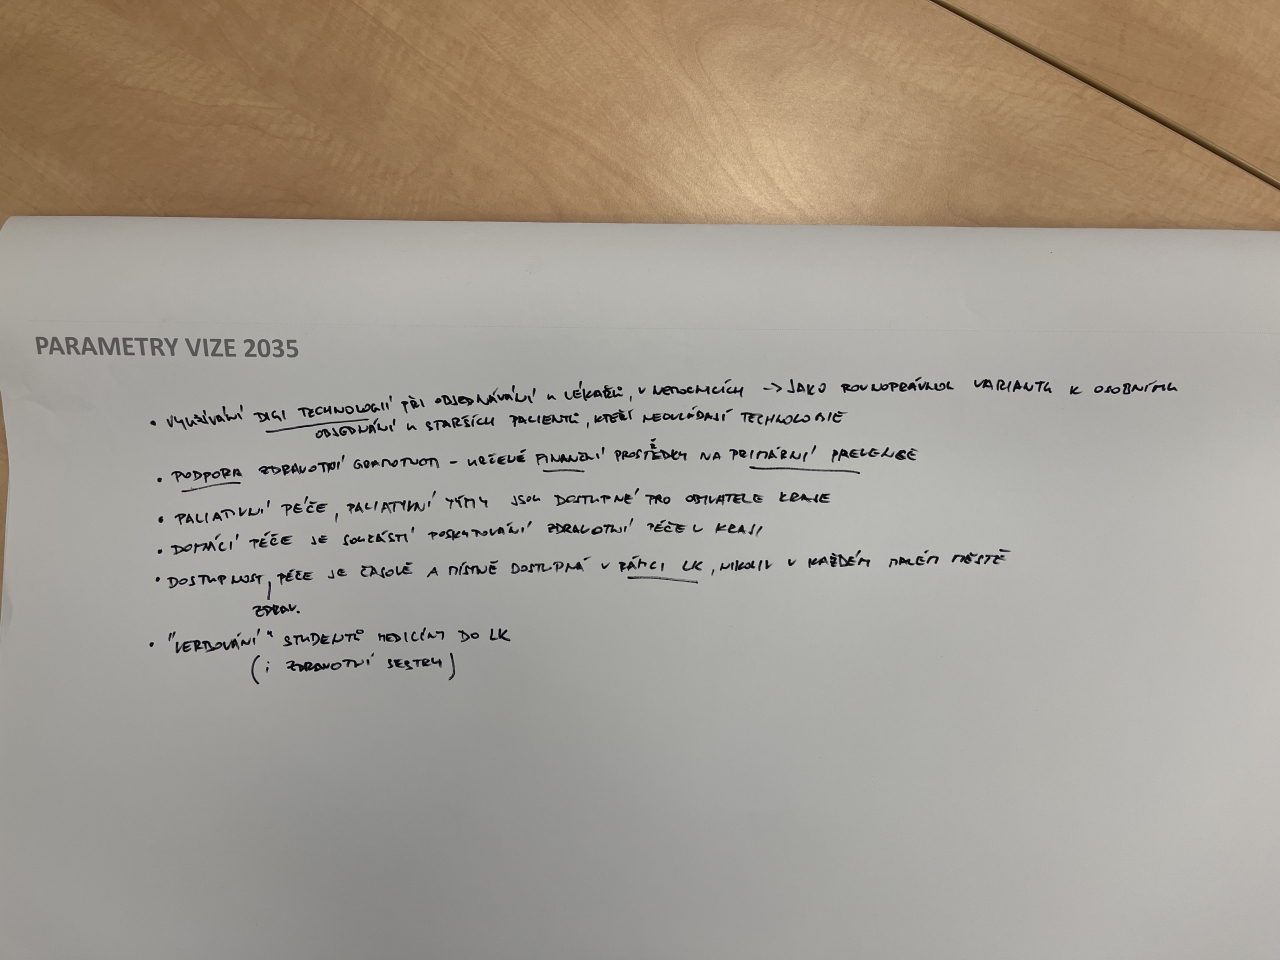 PARAMETRY VIZE 2035
• VYUŽÍVÁNÍ DIGI TECHNOLOGIÍ PŘI OBJEDNÁVÁNÍ U LÉKAŘŮ, V NEMOCNICÍCH → JAKO ROVNOPRÁVNOU VARIANTU K OSOBNÍMU
OBJEDNÁNÍ U STARŠÍCH PACIENTŮ, KTEŘÍ NEOVLÁDAJÍ TECHNOLOGIE
• PODPORA ZDRAVOTNÍ GRAMOTNOSTI - URČENÉ FINANČNÍ PROSTŘEDKY NA PRIMÁRNÍ PREVENCI
• PALIATIVNÍ PÉČE, PALIATIVNÍ TÝMY JSOU DOSTUPNÉ PRO OBYVATELE KRAJE
• DOMÁCÍ PÉČE JE SOUČÁSTÍ POSKYTOVÁNÍ ZDRAVOTNÍ PÉČE V KRAJI
• DOSTUPNOST, PÉČE JE ČASOVĚ A MÍSTNĚ DOSTUPNÁ V RÁMCI LK, NIKOLIV V KAŽDÉM MALÉM MĚSTĚ
ZDRAV.
• "VERBOVÁNÍ" STUDENTŮ MEDICÍNY DO LK
(i ZDRAVOTNÍ SESTRY)